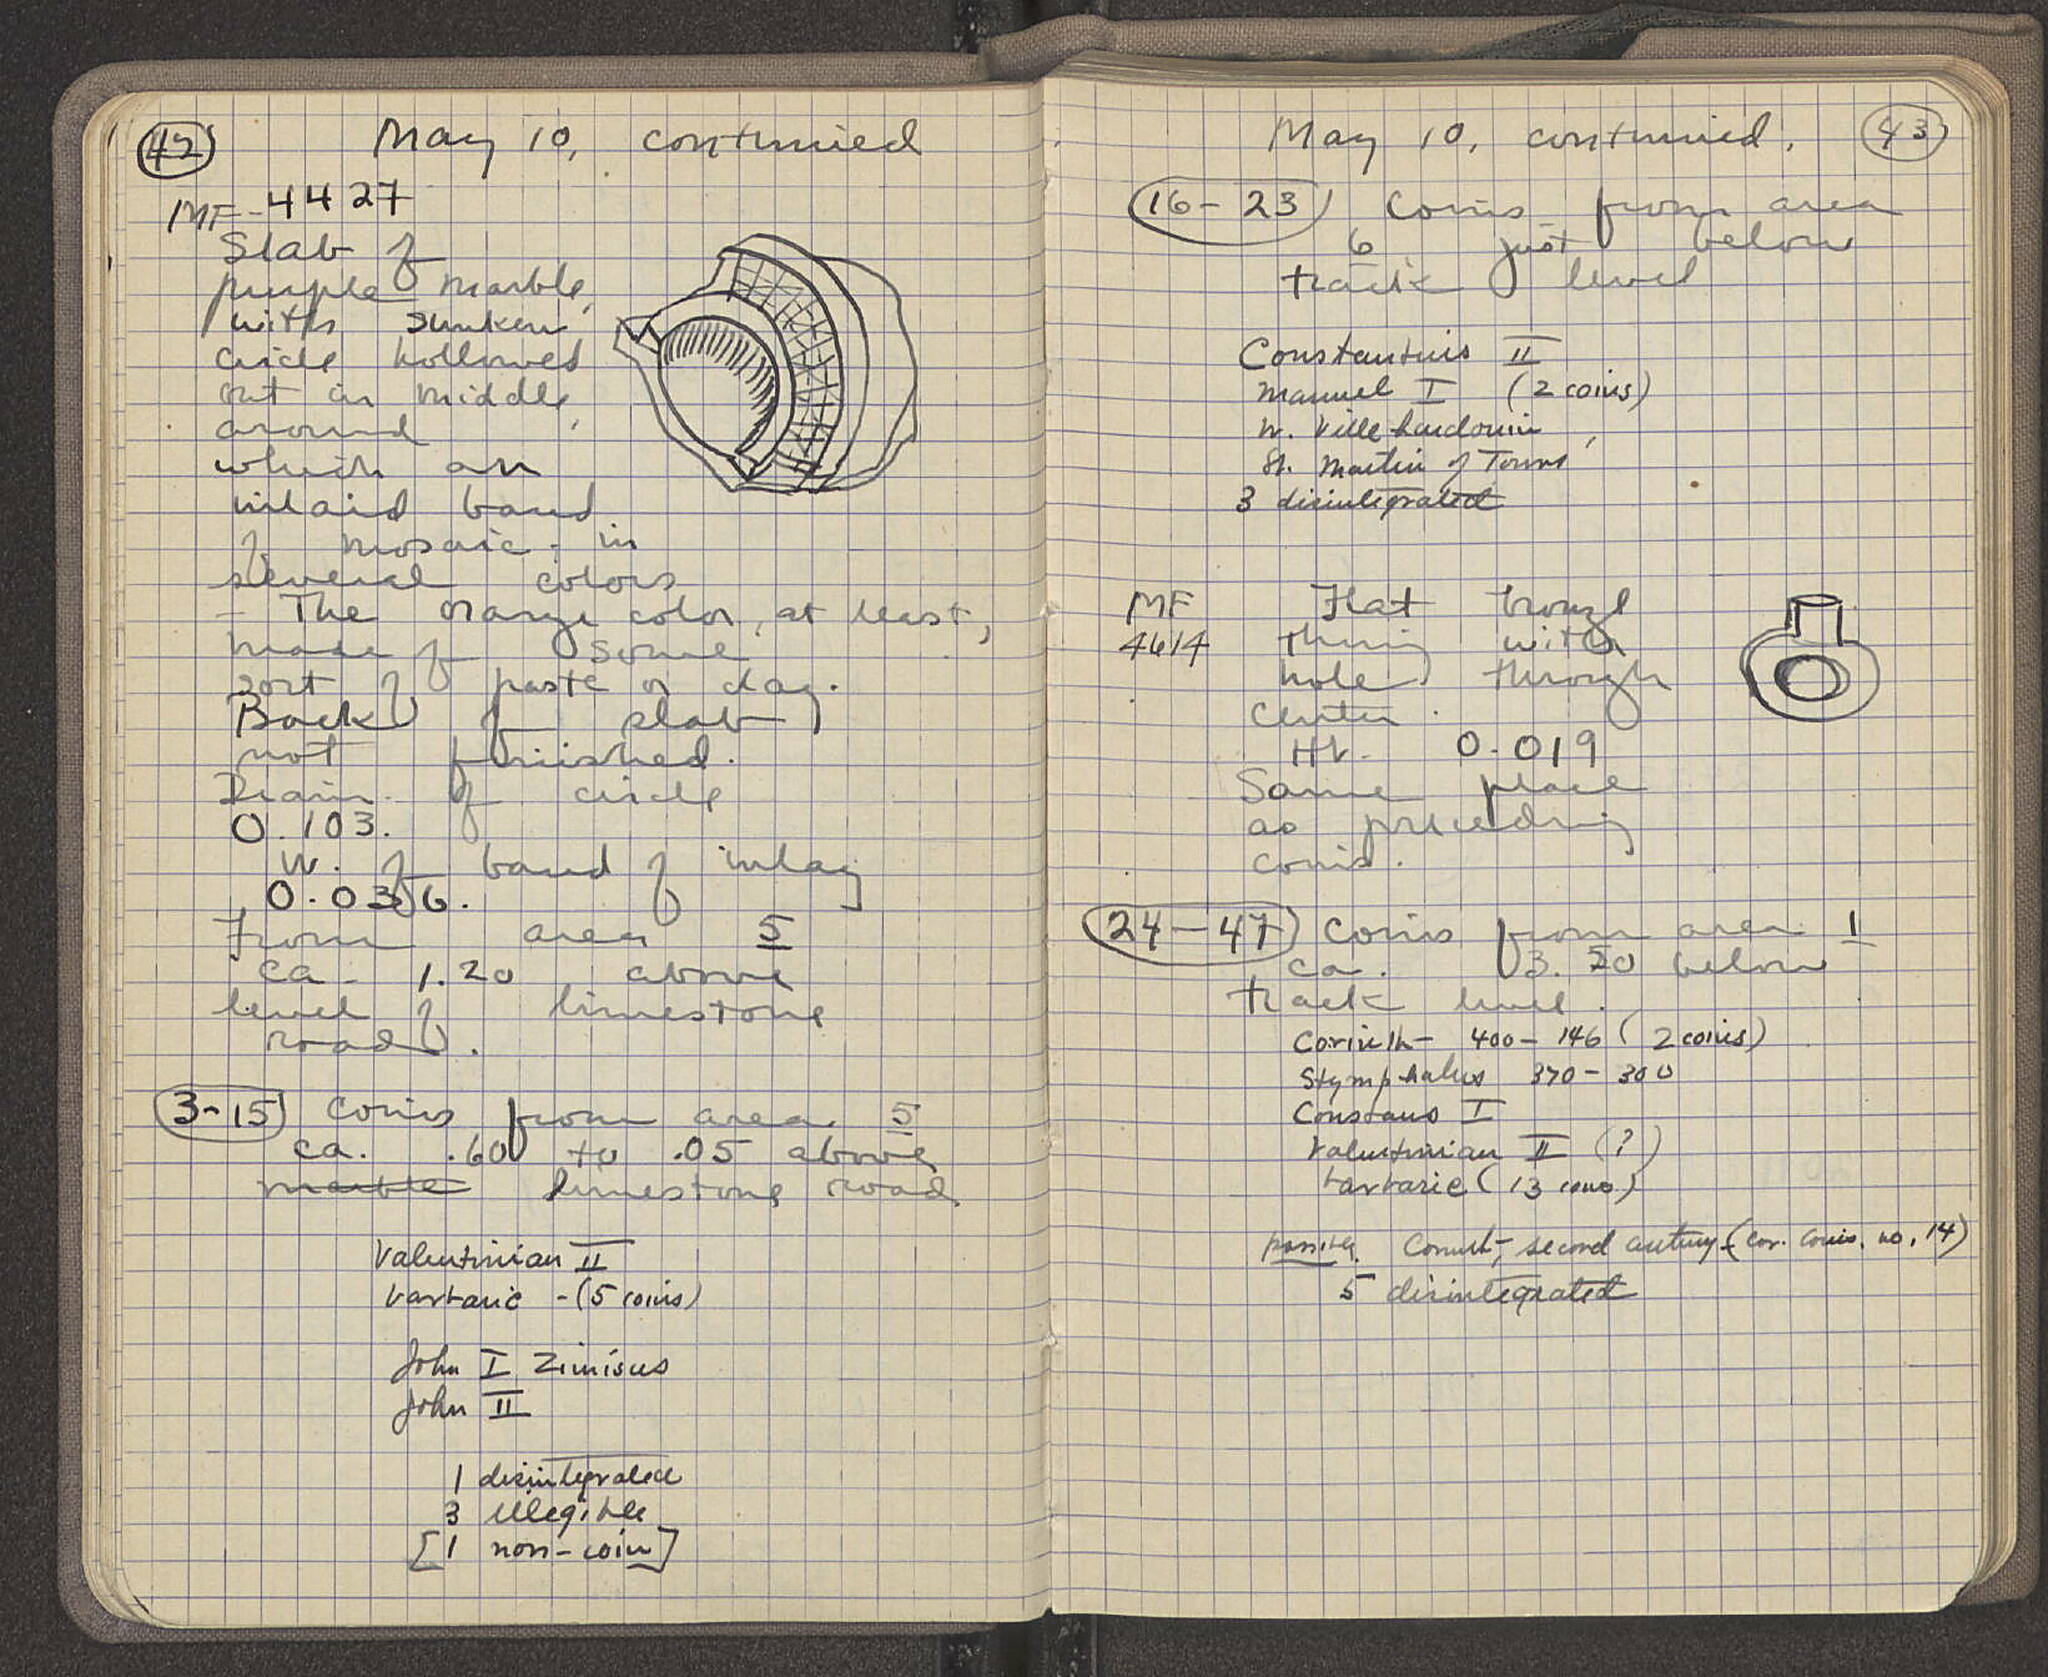 42
May 10, continued
MF-4427
Slab of
purple marble,
with sunken
circle hollowed
out in middle,
around
which an
inlaid band
of mosaic - in
several colors
- The orange color, at least,
made of some
sort of paste or clay.
Back of slab
not finished.
Diam. of circle
0.103.
W. of band of inlay
0.036.
From area 5
ca. 1.20 above
level of limestone
road.
3-15 coins from area 5
ca. .60 to .05 above
marble limestone road
Valentinian II
barbaric - (5 coins)
John I Zimisus
John II
1 disintegrated
3 illegible
[1 non-coin]
May 10, continued. 43
16-23 Coins from area
6 just below
track level
Constantius II
Manuel I (2 coins)
W. Villehardouin
St. Martin of Tours
3 disintegrated
MF Flat bronze
4614 thing with
hole through
center.
Ht. 0.019
Same place
as preceding
coins.
24-47 Coins from area 1
ca. 3.50 below
track level.
Corinth - 400-146 (2 coins)
Stymphalus 370-300
Constans I
Valentinian II (?)
barbaric (13 coins)
possibly Corinth, second century (Cor. Coins, no. 14)
5 disintegrated